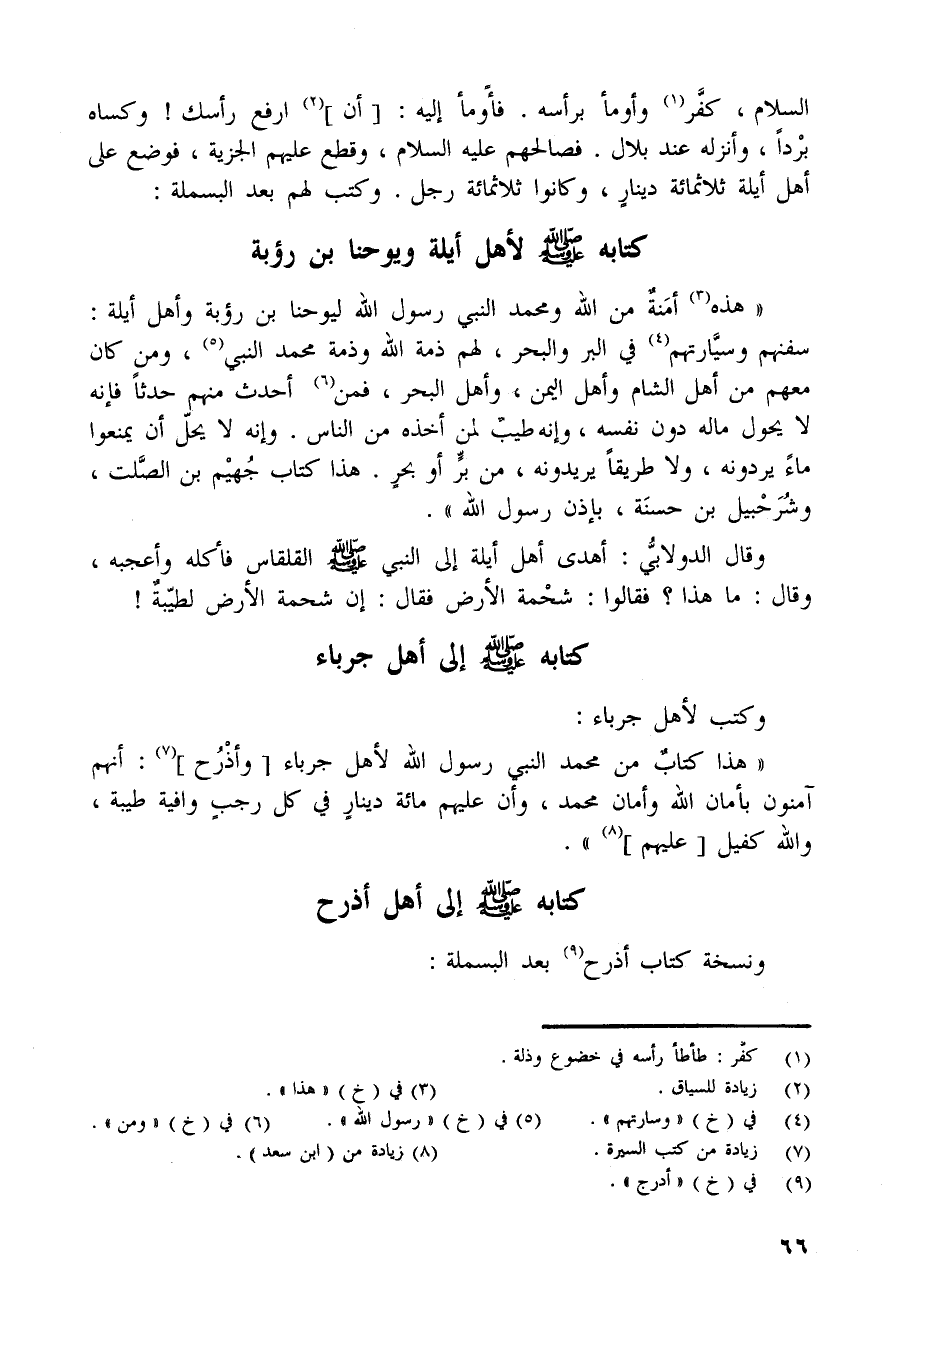 السلام ، كفَّر(١) وأومأ برأسه . فأَومأ إليه : [ أن ](٢) ارفع رأسك ! وكساه
بُرْداً ، وأنزله عند بلال . فصالحهم عليه السلام ، وقطع عليهم الجزية ، فوضع على
أهل أيلة ثلاثمائة دينارٍ ، وكانوا ثلاثمائة رجل . وكتب لهم بعد البسملة :
كتابه ﷺ لأهل أيلة ويوحنا بن رؤبة
« هذه(٣) أمَنةٌ من الله ومحمد النبي رسول الله ليوحنا بن رؤبة وأهل أيلة :
سفنهم وسيَّارتهم(٤) في البر والبحر ، لهم ذمة الله وذمة محمد النبي(٥) ، ومن كان
معهم من أهل الشام وأهل اليمن ، وأهل البحر ، فمن(٦) أحدث منهم حدثاً فإنه
لا يحول ماله دون نفسه ، وإنه طيبٌ لمن أخذه من الناس . وإنه لا يحلّ أن يمنعوا
ماءً يردونه ، ولا طريقاً يريدونه ، من برٍّ أو بحرٍ . هذا كتاب جُهيْم بن الصَّلت ،
وشُرَحْبيل بن حسنَة ، بإذن رسول الله » .
وقال الدولابيُّ : أهدى أهل أيلة إلى النبي ﷺ القلقاس فأكله وأعجبه ،
وقال : ما هذا ؟ فقالوا : شحْمة الأرض فقال : إن شحمة الأرض لطيّبةٌ !
كتابه ﷺ إلى أهل جرباء
وكتب لأهل جرباء :
« هذا كتابٌ من محمد النبي رسول الله لأهل جرباء [ وأذْرُح ](٧) : أنهم
آمنون بأمان الله وأمان محمد ، وأن عليهم مائة دينارٍ في كل رجبٍ وافية طيبة ،
والله كفيل [ عليهم ](٨) » .
كتابه ﷺ إلى أهل أذرح
ونسخة كتاب أذرح(٩) بعد البسملة :
(١) كفّر : طأطأ رأسه في خضوع وذلة .
(٢) زيادة للسياق . (٣) في ( خ ) « هذا » .
(٤) في ( خ ) « وسارتهم » . (٥) في ( خ ) « رسول الله » . (٦) في ( خ ) « ومن » .
(٧) زيادة من كتب السيرة . (٨) زيادة من ( ابن سعد ) .
(٩) في ( خ ) « أدرج » .
٦٦